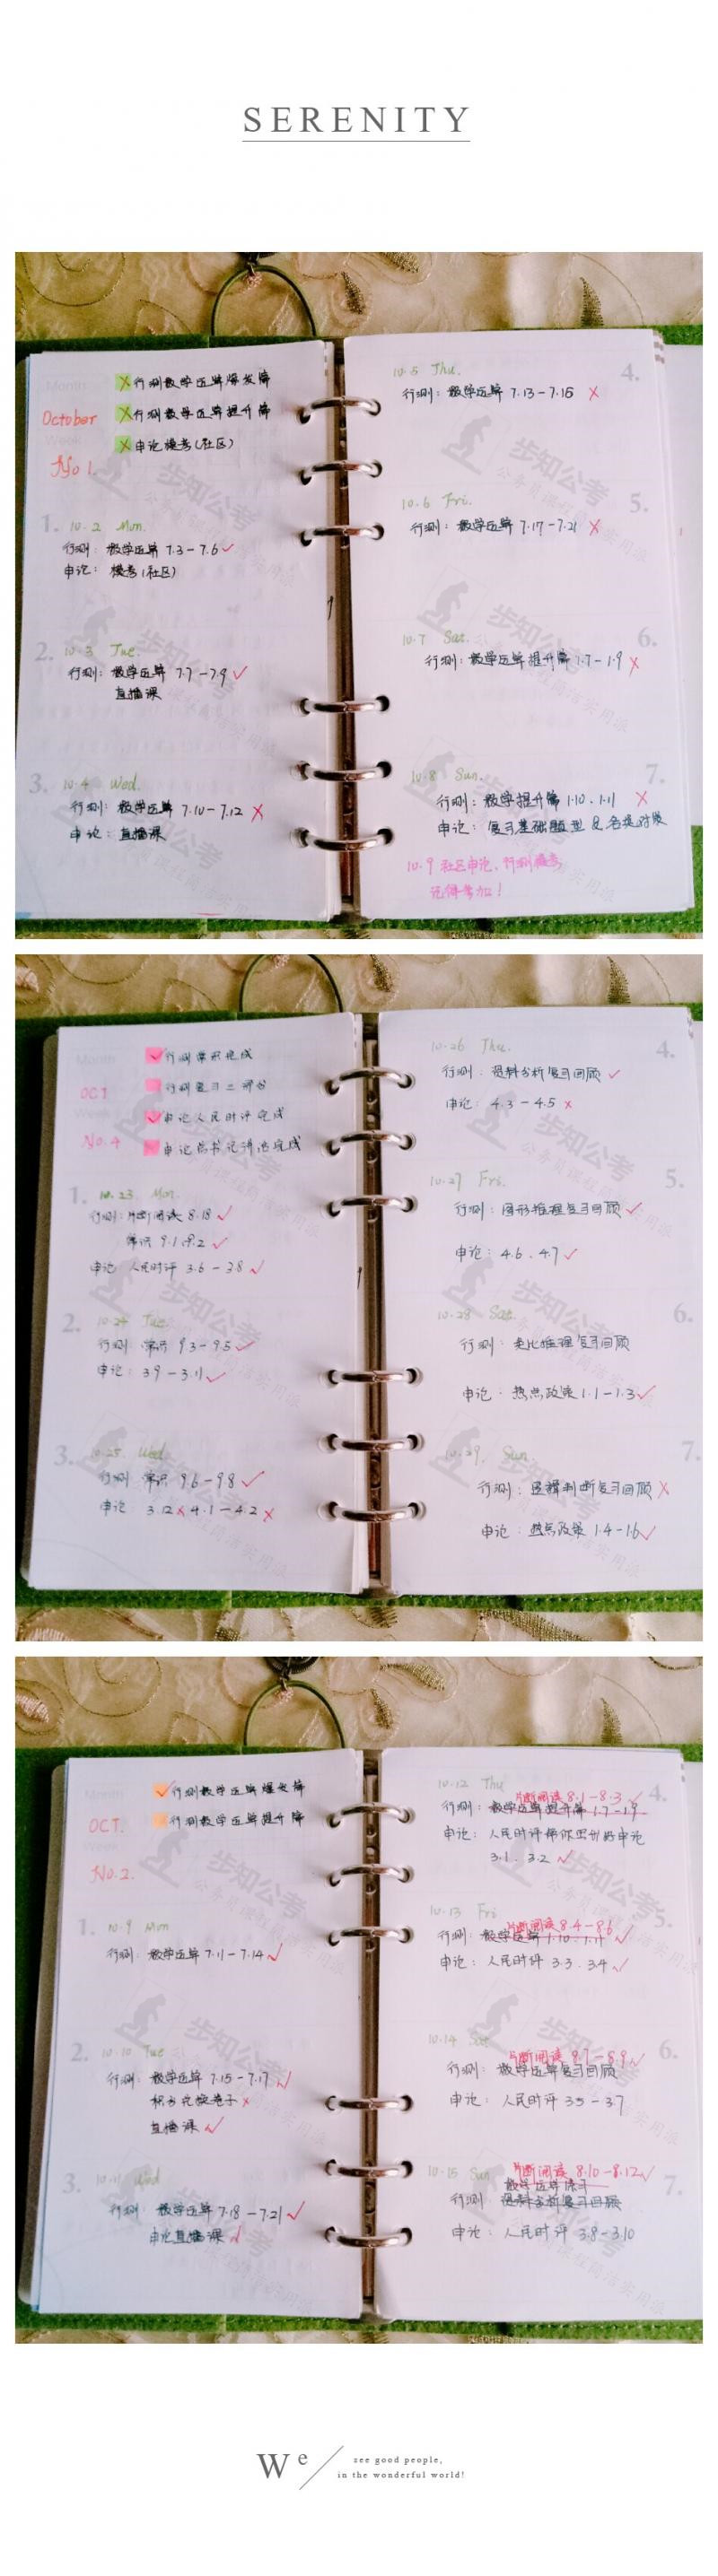 SERENITY
Month
October
Week
No 1.
行测数学运算爆发篇
行测数学运算提升篇
申论模考(社区)
1. 10·2 Mon.
行测: 数学运算 7.3-7.6
申论: 模考(社区)
2. 10·3 Tue.
行测: 数学运算 7.7-7.9
直播课
3. 10·4 Wed.
行测: 数学运算 7.10-7.12
申论: 直播课
10·5 Thu. 4.
行测: 数学运算 7.13-7.16
10·6 Fri. 5.
行测: 数学运算 7.17-7.21
10·7 Sat. 6.
行测: 数学运算提升篇 1.7-1.9
10·8 Sun. 7.
行测: 数学提升篇 1.10、1.11
申论: 复习基础题型 &
10·9 社区申论, 行测模考
记得参加!
步知公考
Month
OCT
Week
No.4
行测常识完成
行测复习二部分
申论人民时评完成
申论总书记讲话完成
1. 10·23 Mon.
行测: 片断阅读 8.18
常识 9.1、9.2
申论 人民时评 3.6-3.8
2. 10·24 Tue.
行测: 常识 9.3-9.5
申论: 3.9-3.11
3. 10·25 Wed.
行测 常识 9.6-9.8
申论 3.12 4.1-4.2
10·26 Thu. 4.
行测: 资料分析复习回顾
申论: 4.3-4.5
10·27 Fri. 5.
行测: 图形推理复习回顾
申论: 4.6、4.7
10·28 Sat. 6.
行测: 类比推理复习回顾
申论: 热点政策 1.1-1.3
10·29. Sun. 7.
行测: 逻辑判断复习回顾
申论: 热点政策 1.4-1.6
步知公考
Month
OCT.
Week
No.2.
行测数学运算爆发篇
行测数学运算提升篇
1. 10·9 Mon
行测: 数学运算 7.11-7.14
2. 10·10 Tue
行测: 数学运算 7.15-7.17
直播课
3. 10·11 Wed
行测 数学运算 7.18-7.21
申论直播课
10·12 Thu 4.
片断阅读 8.1-8.3
行测: 数学运算提升篇 1.7-1.9
申论: 人民时评带你写好申论
3.1、3.2
10·13 Fri 5.
片断阅读 8.4-8.6
行测: 数学运算 1.10、1.11
申论: 人民时评 3.3、3.4
10·14 Sat 6.
片断阅读 8.7-8.9
行测: 数学运算复习回顾
申论: 人民时评 3.5-3.7
10·15 Sun 7.
片断阅读 8.10-8.12
数学运算练习
行测: 资料分析复习回顾
申论: 人民时评 3.8-3.10
步知公考
We
see good people,
in the wonderful world!